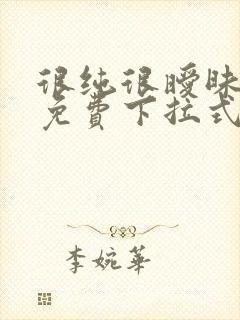 很纯很暧昧
免费下拉式
李婉华